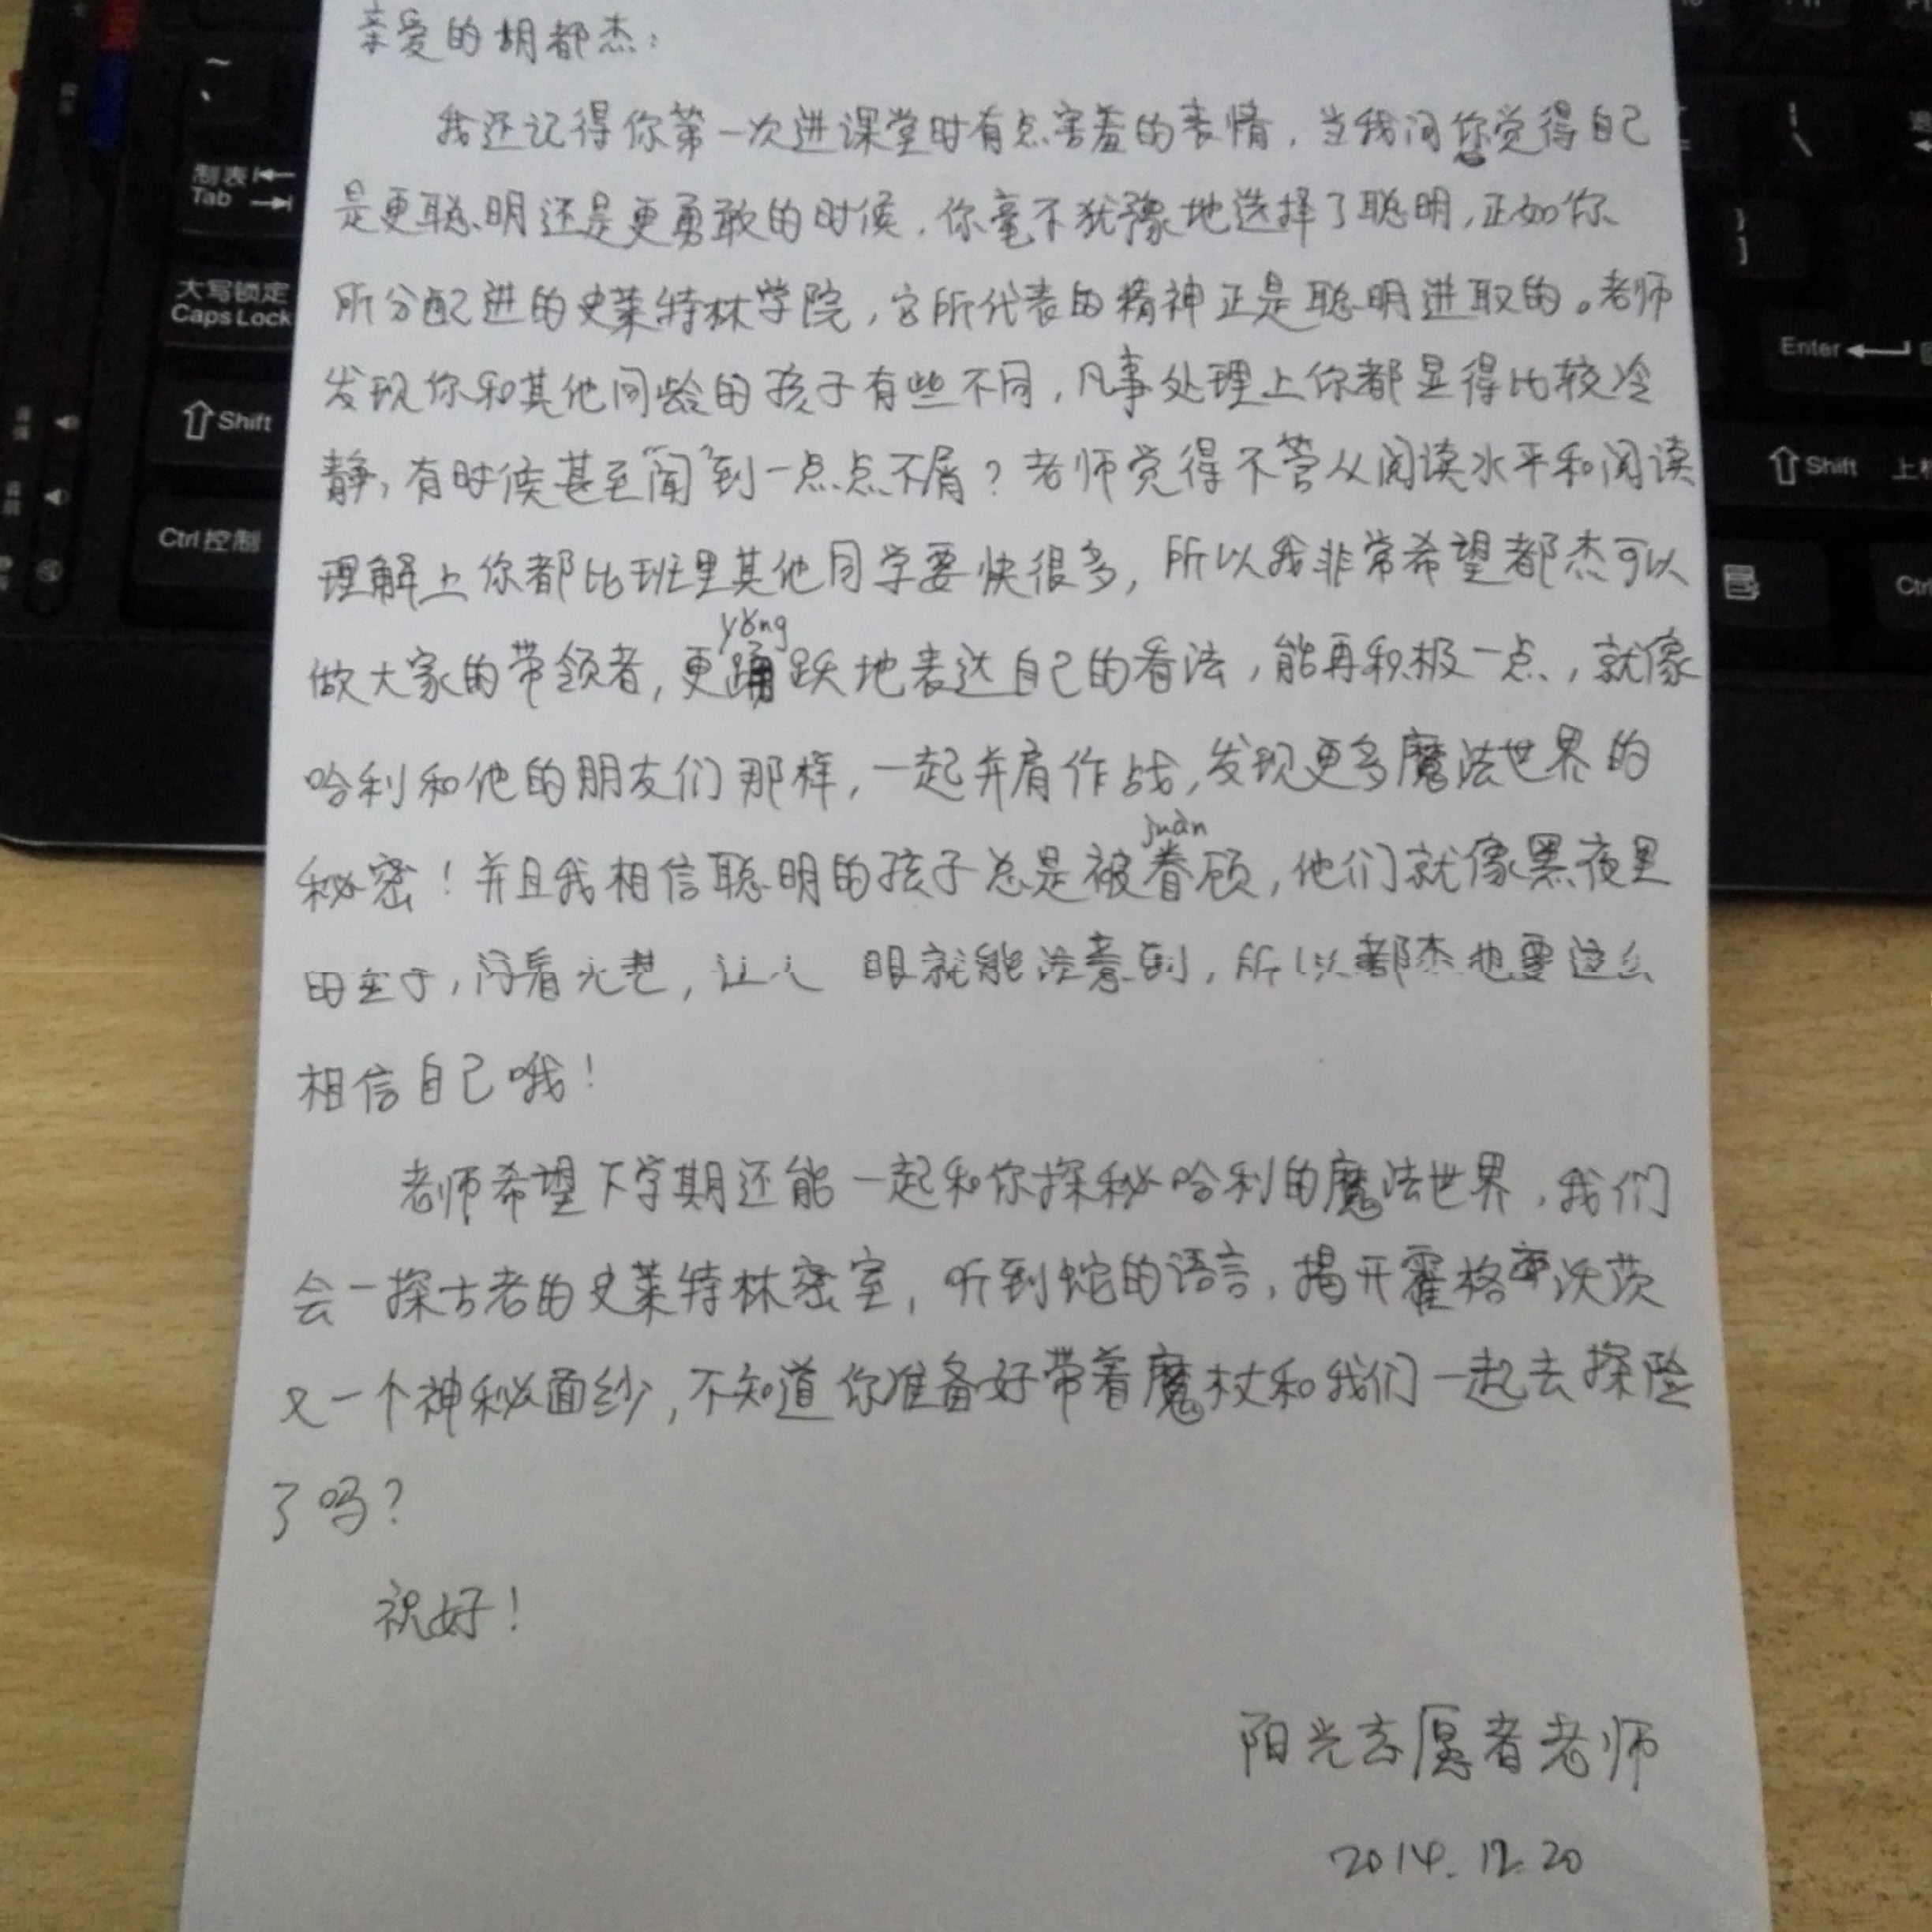 亲爱的胡都杰：
我还记得你第一次进课堂时有点害羞的表情，当我问您觉得自己
是更聪明还是更勇敢的时候，你毫不犹豫地选择了聪明，正如你
所分配进的史莱特林学院，它所代表的精神正是聪明进取的。老师
发现你和其他同龄的孩子有些不同，凡事处理上你都显得比较冷
静，有时候甚至“闻”到一点点不屑？老师觉得不管从阅读水平和阅读
理解上你都比班里其他同学要快很多，所以我非常希望都杰可以
yǒng
做大家的带领者，更踊跃地表达自己的看法，能再积极一点，就像
哈利和他的朋友们那样，一起并肩作战，发现更多魔法世界的
juàn
秘密！并且我相信聪明的孩子总是被眷顾，他们就像黑夜里
的 ，  着光芒，让人 眼就能注意到，所以都杰也要这么
相信自己哦！
老师希望下学期还能一起和你探秘哈利的魔法世界，我们
会一探古老的史莱特林密室，听到蛇的语言，揭开霍格沃茨
又一个神秘面纱，不知道你准备好带着魔杖和我们一起去探险
了吗？
祝好！
阳光志愿者老师
2014.12.20
~
、
制表
Tab
大写锁定
Caps Lock
Shift
Ctrl控制
|
\
}
]
Enter
Shift 上
Ctrl